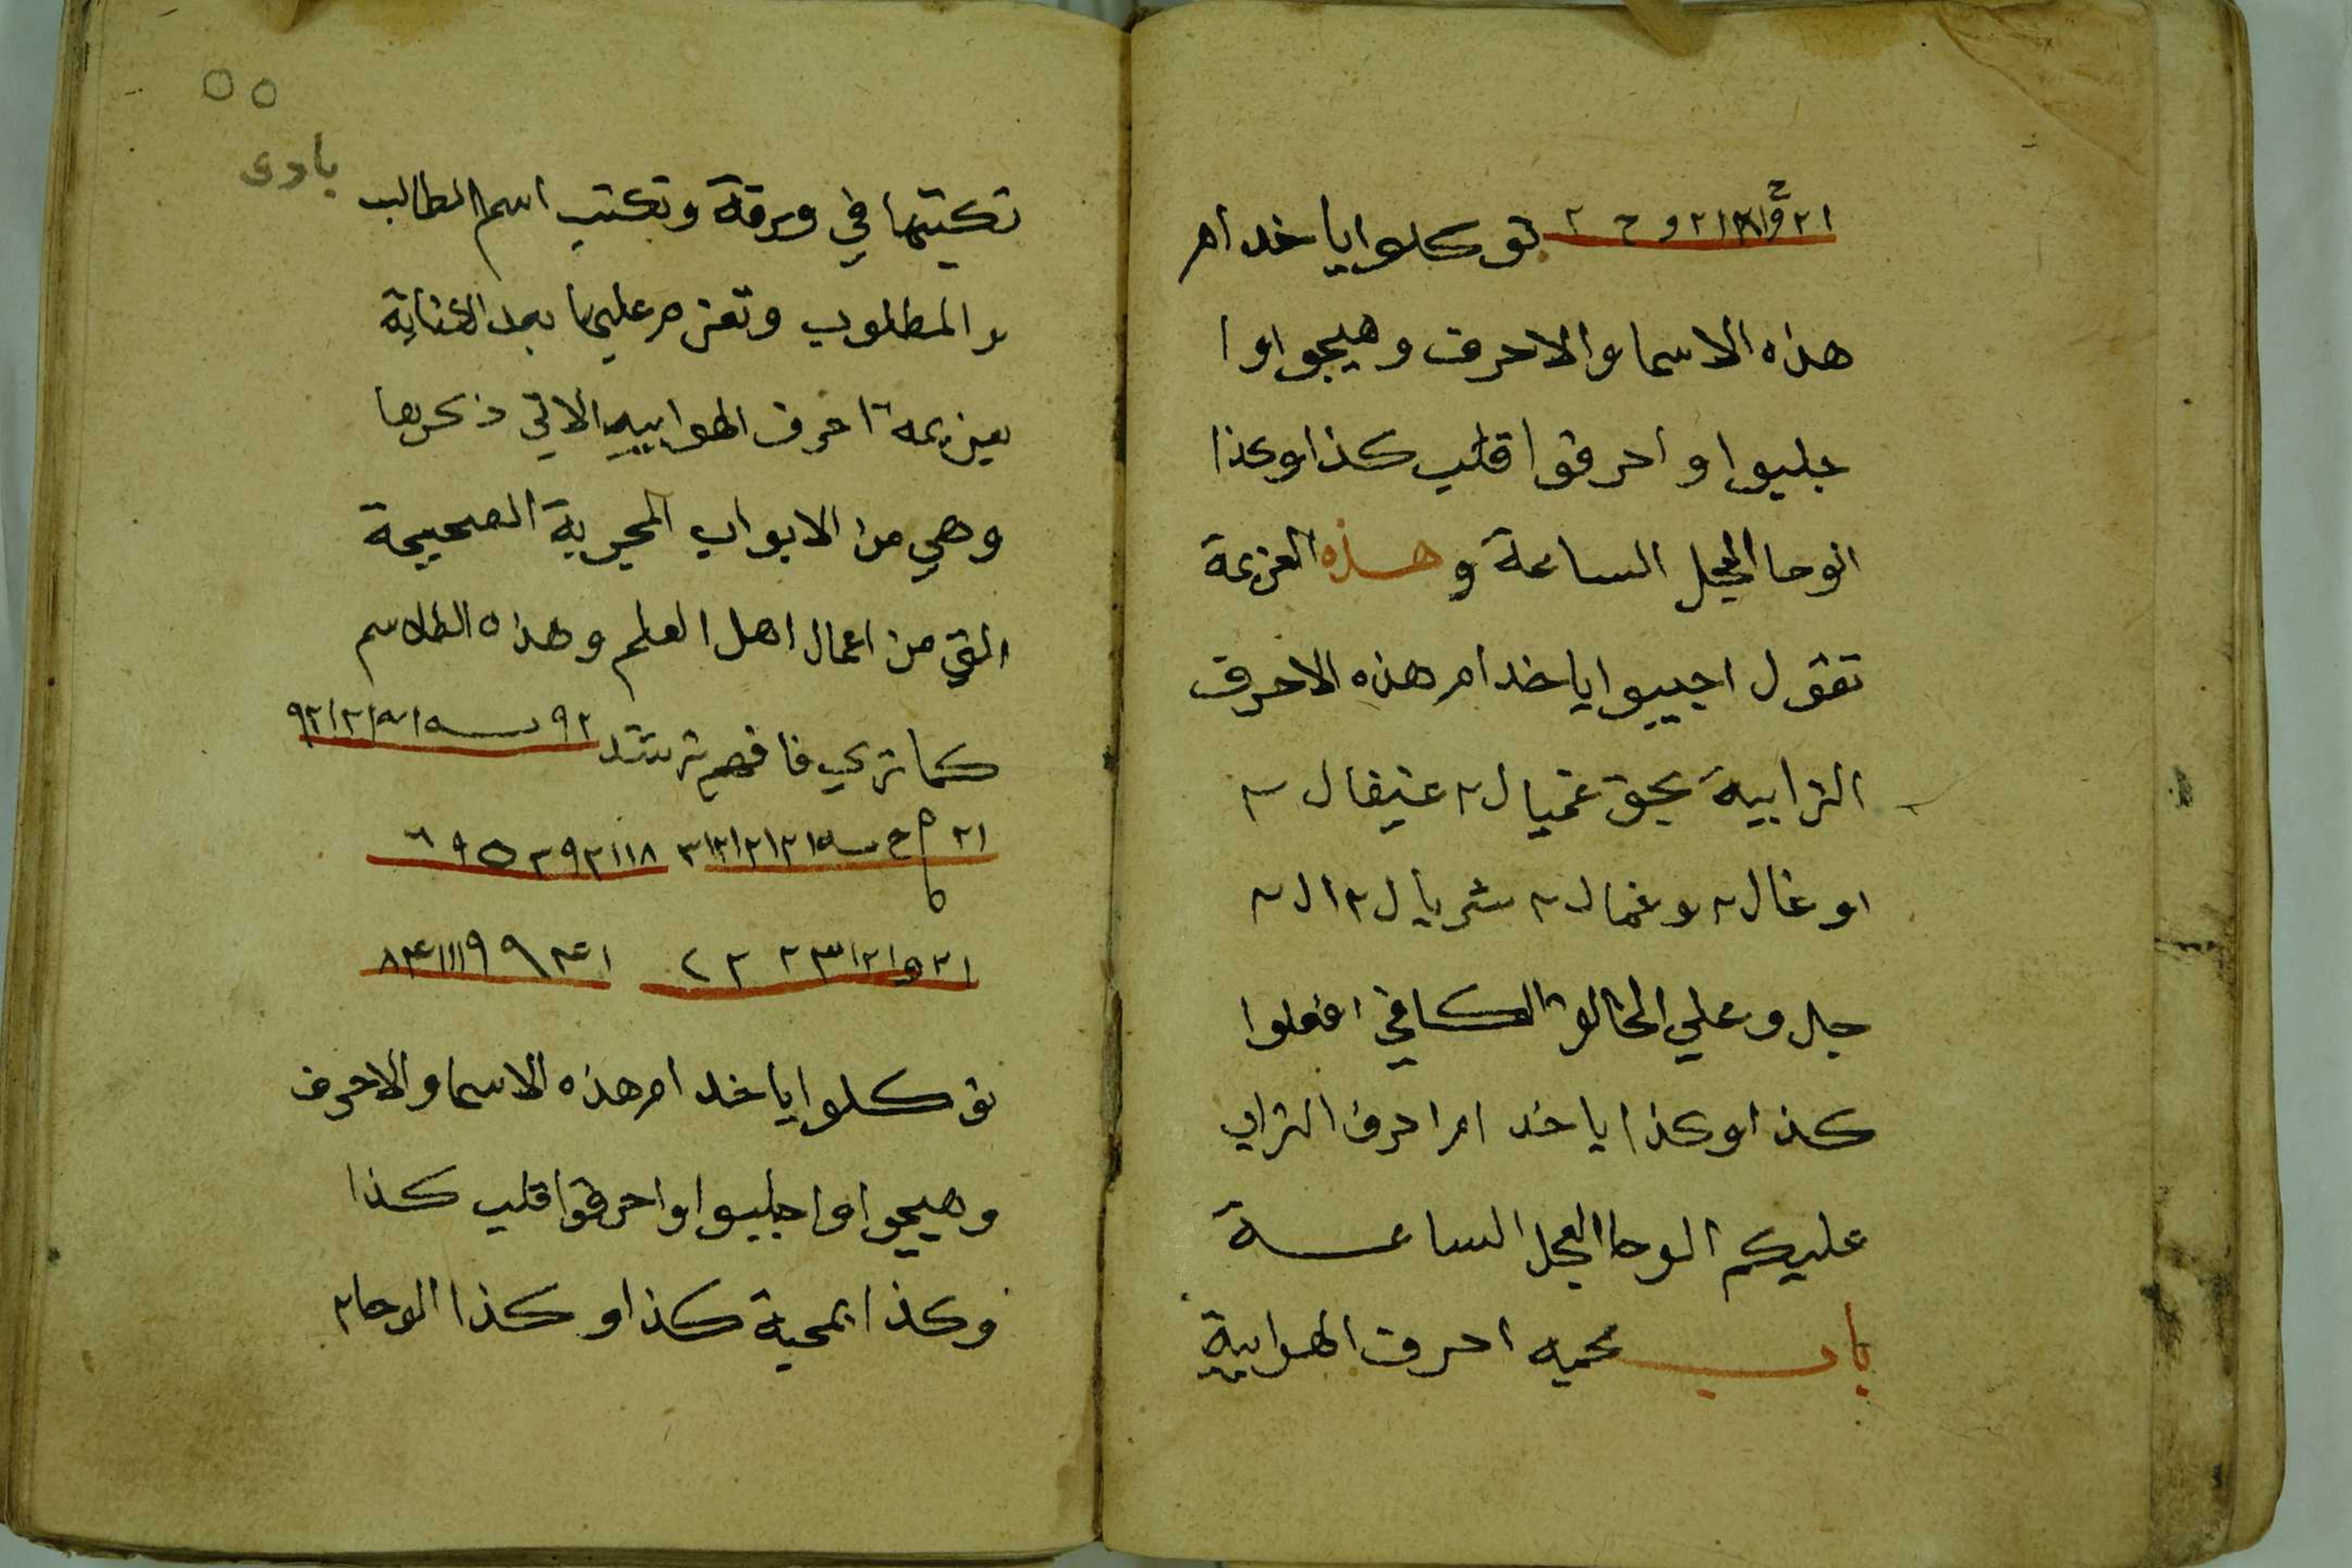 توكلوا يا خدام
هذه الاسما والاحرف وهيجوا وا
جلبوا واحرقوا قلب كذا وكذا
الوحا العجل الساعة وهذه العزيمة
تقول اجيبوا يا خدام هذه الاحرف
الترابية بحق غميال ٢ عنيفال ٢
اوغال ٢ وغمال ٢ شريال ٢ ال ٢
افعلوا
كذا وكذا يا خدام احرف الترابي
عليكم الوحا العجل الساعة
باب محبه احرف الهوابية
٥٥
بادى
تكتبها في ورقة وتكتب اسم الطالب
والمطلوب وتعزم عليها بعد الكتابة
بعزيمة احرف الهوابيه الاتي ذكرها
وهي من الابواب المجربة الصحيحة
التي من اعمال اهل العلم وهذه الطلاسم
كما تري فافهم ترشد
توكلوا يا خدام هذه الاسما والاحرف
وهيجوا واجلبوا واحرقوا قلب كذا
وكذا بمحبة كذا وكذا الوحا ٢